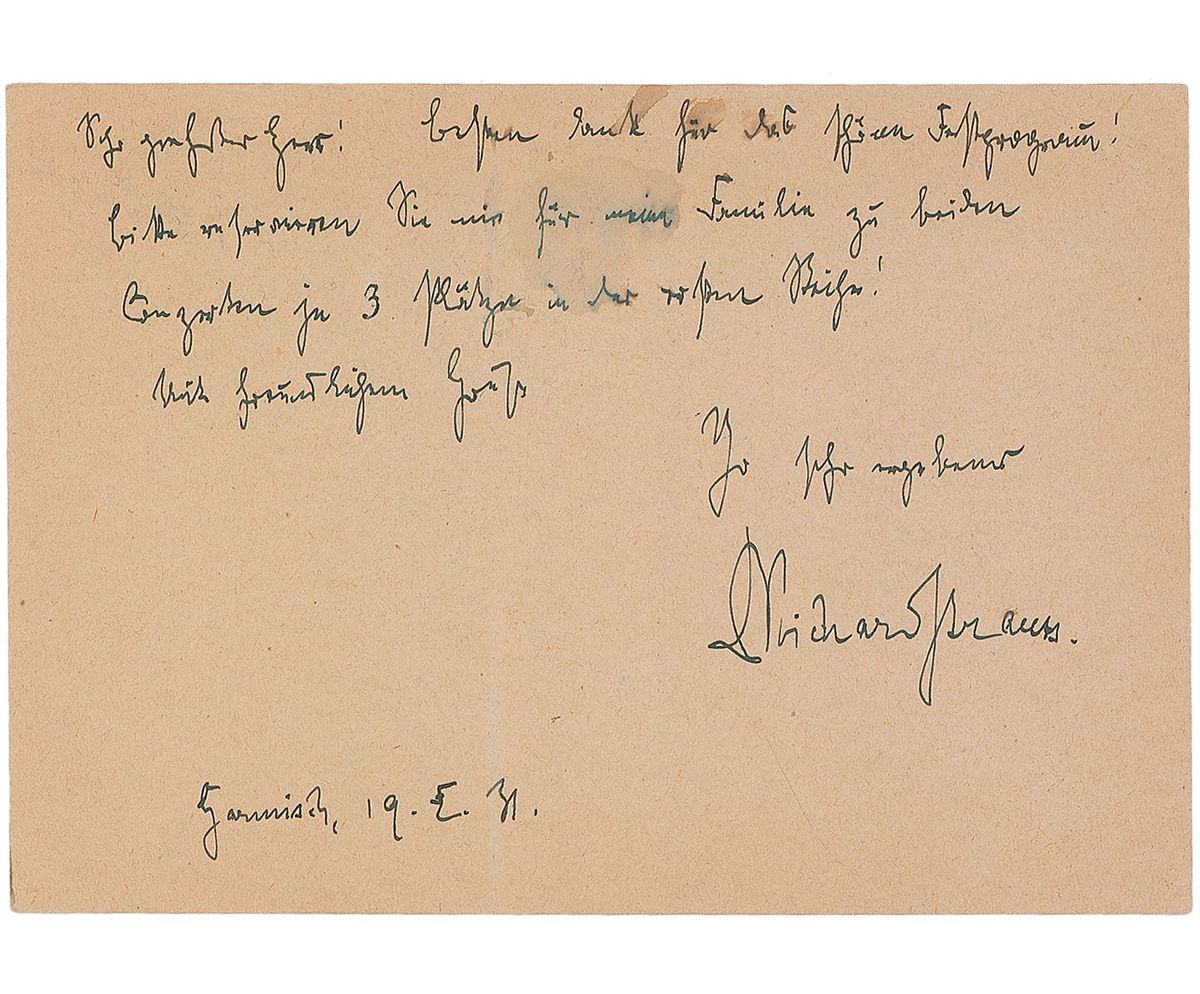 Sehr geehrter Herr! Besten Dank für das schöne Festprogramm!
Bitte reservieren Sie mir für meine Familie zu beiden
Conzerten je 3 Plätze in der ersten Reihe!
Mit freundlichem Gruß
Ihr sehr ergebener
Richard Strauss.
Garmisch, 19. 31.